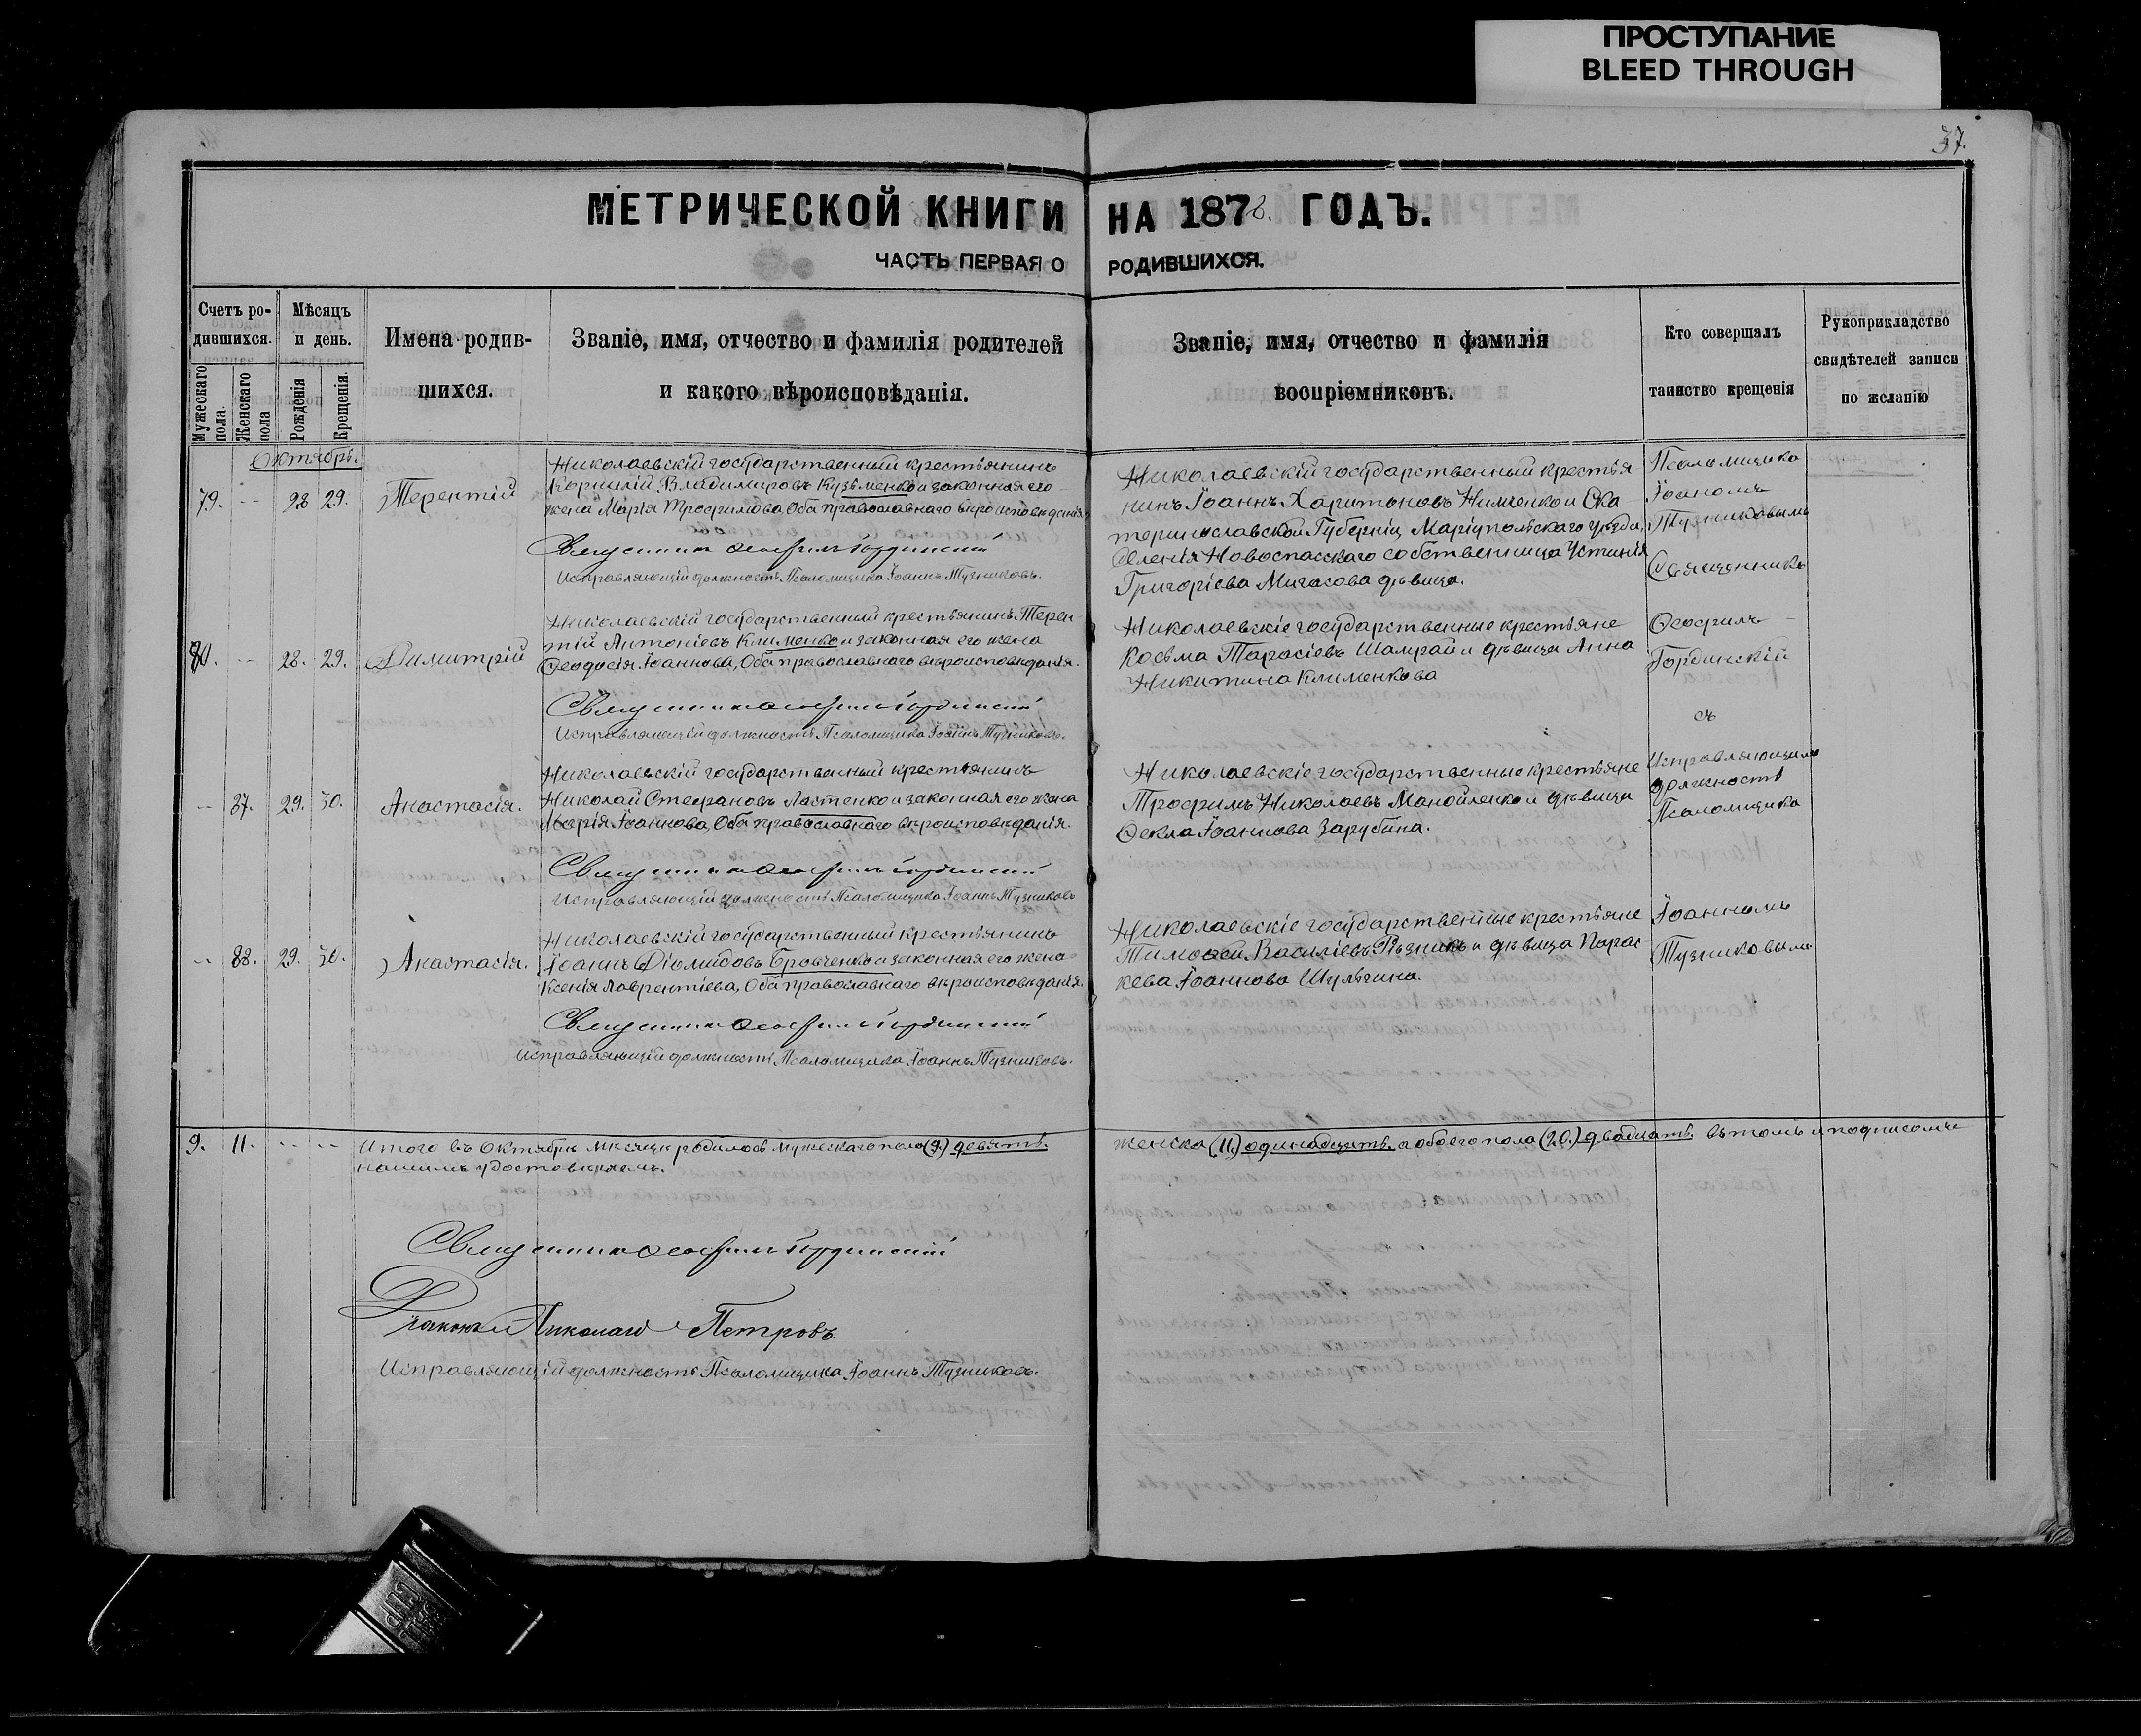 ПРОСТУПАНИЕ
BLEED THROUGH
37.
МЕТРИЧЕСКОЙ КНИГИ НА 1878. ГОДЪ.
ЧАСТЬ ПЕРВАЯ О РОДИВШИХСЯ.
Счетъ родившихся.
Мужескаго пола.
Женскаго пола
Мѣсяцъ и день.
Рожденія
Крещенія.
Имена родившихся.
Званіе, имя, отчество и фамилія родителей
и какого вѣроисповѣданія.
Званіе, имя, отчество и фамилія
воспріемниковъ.
Кто совершалъ
таинство крещенія
Рукоприкладство
свидѣтелей записи
по желанію
Октябрь.
79. -- 28 29. Терентій
Николаевскій государственный крестьянинъ
Корнилій Владиміровъ Кузьменко и законная его
жена Марія Трофимова, Оба православнаго вѣроисповѣданія
Священникъ Ѳеофилъ Гординскій
Исправляющій должность Псаломщика Іоаннъ Тузниковъ.
Николаевскій государственный крестья
нинъ Іоаннъ Харитоновъ Нимченко и Ека
теринославской Губерніи Маріупольскаго уѣзда,
Селенія Новоспасскаго собственница Устинія
Григоріева Мигасова дѣвица.
80. -- 28. 29. Димитрій
Николаевскій государственный крестьянинъ Терен
тій Антоніевъ Клименко и законная его жена
Ѳеодосія Іоаннова, Оба православнаго вѣроисповѣданія.
Священникъ Ѳеофилъ Гординскій
Исправляющій должность Псаломщика Іоаннъ Тузниковъ.
Николаевскіе государственные крестьяне
Косьма Тарасіевъ Шамрай и дѣвица Анна
Никитина Клименкова
-- 87. 29. 30. Анастасія.
Николаевскій государственный крестьянинъ
Николай Стефановъ Ластенко и законная его жена
Марія Іоаннова, Оба православнаго вѣроисповѣданія.
Священникъ Ѳеофилъ Гординскій
Исправляющій должность Псаломщика Іоаннъ Тузниковъ
Николаевскіе государственные крестьяне
Трофимъ Николаевъ Манойленко и дѣвица
Ѳекла Іоаннова Зарубина.
-- 88. 29. 30. Анастасія.
Николаевскій государственный крестьянинъ
Іоаннъ Діомидовъ Бровченко и законная его жена
Ксенія Лаврентіева, Оба православнаго вѣроисповѣданія.
Священникъ Ѳеофилъ Гординскій
Исправляющій должность Псаломщика Іоаннъ Тузниковъ.
Николаевскіе государственные крестьяне
Тимоѳей Василіевъ Рѣзникъ и дѣвица Парас
кева Іоаннова Шульгина.
Псаломщика
Іоаномъ
Тузниковымъ
Священникъ
Ѳеофилъ
Гординскій
съ
Исправляющимъ
должность
Псаломщика
Іоанномъ
Тузниковымъ
9. 11. -- -- Итого въ Октябрѣ мѣсяцѣ родилось мужескаго пола (9.) девять.
женска (11.) одинадцать. а обоего пола (20.) двадцать. въ томъ и подписомъ
нашимъ удостовѣряемъ.
Священникъ Ѳеофилъ Гординскій
Діаконъ Николай Петровъ.
Исправляющій должность Псаломщика Іоаннъ Тузниковъ.